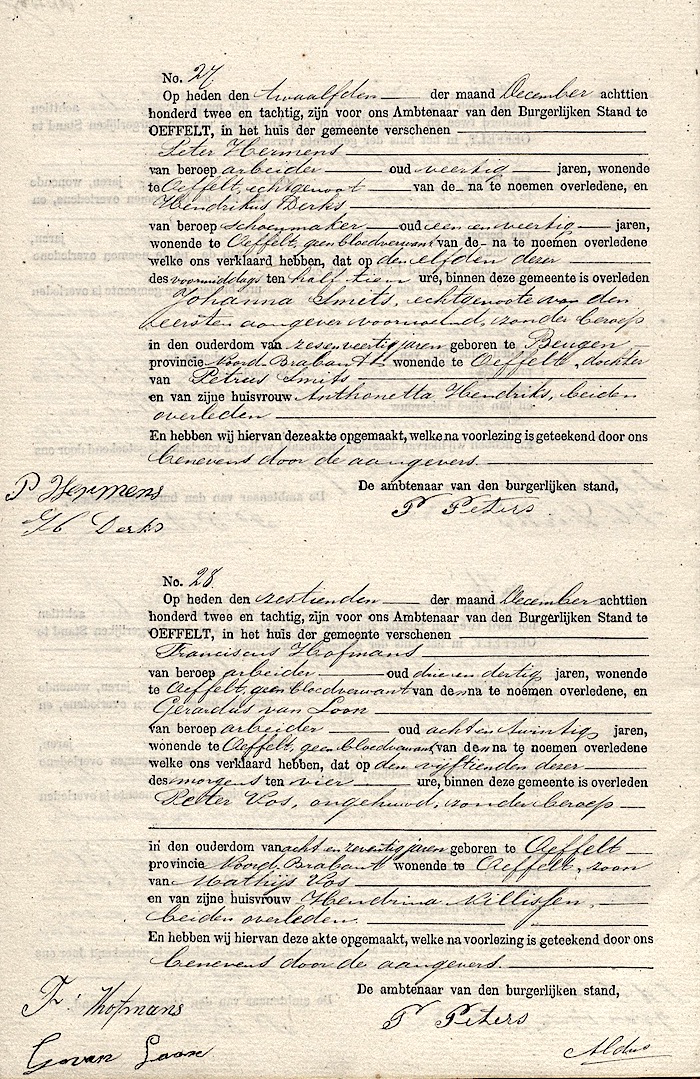 No. 27
Op heden den twaalfden der maand December achttien
honderd twee en tachtig, zijn voor ons Ambtenaar van den Burgerlijken Stand te
OEFFELT, in het huis der gemeente verschenen
Peter Hermens
van beroep arbeider oud veertig jaren, wonende
te Oeffelt, echtgenoot van de na te noemen overledene, en
Hendrikus Derks
van beroep schoenmaker oud een en veertig jaren,
wonende te Oeffelt, geen bloedverwant van de na te noemen overledene
welke ons verklaard hebben, dat op den elfden dezer
des voormiddags ten half tien ure, binnen deze gemeente is overleden
Johanna Smits, echtgenoote van den
eersten aangever voornoemd, zonder beroep
in den ouderdom van zes en veertig jaren geboren te Beugen
provincie Noord-Brabant wonende te Oeffelt, dochter
van Petrus Smits
en van zijne huisvrouw Anthonetta Hendriks, beiden
overleden
En hebben wij hiervan deze akte opgemaakt, welke na voorlezing is geteekend door ons
benevens door de aangevers.
De ambtenaar van den burgerlijken stand,
P Hermens
P Peters
H Derks
No. 28
Op heden den zestienden der maand December achttien
honderd twee en tachtig, zijn voor ons Ambtenaar van den Burgerlijken Stand te
OEFFELT, in het huis der gemeente verschenen
Franciscus Hofmans
van beroep arbeider oud drie en dertig jaren, wonende
te Oeffelt, geen bloedverwant van den na te noemen overledene, en
Gerardus van Loon
van beroep arbeider oud acht en twintig jaren,
wonende te Oeffelt, geen bloedverwant van den na te noemen overledene
welke ons verklaard hebben, dat op den vijftienden dezer
des morgens ten vier ure, binnen deze gemeente is overleden
Peter Vos, ongehuwd, zonder beroep
in den ouderdom van acht en zeventig jaren geboren te Oeffelt
provincie Noord-Brabant wonende te Oeffelt, zoon
van Mathijs Vos
en van zijne huisvrouw Hendrina Willissen,
beiden overleden
En hebben wij hiervan deze akte opgemaakt, welke na voorlezing is geteekend door ons
benevens door de aangevers.
De ambtenaar van den burgerlijken stand,
F. Hofmans
P Peters
G van Loon
Aldus